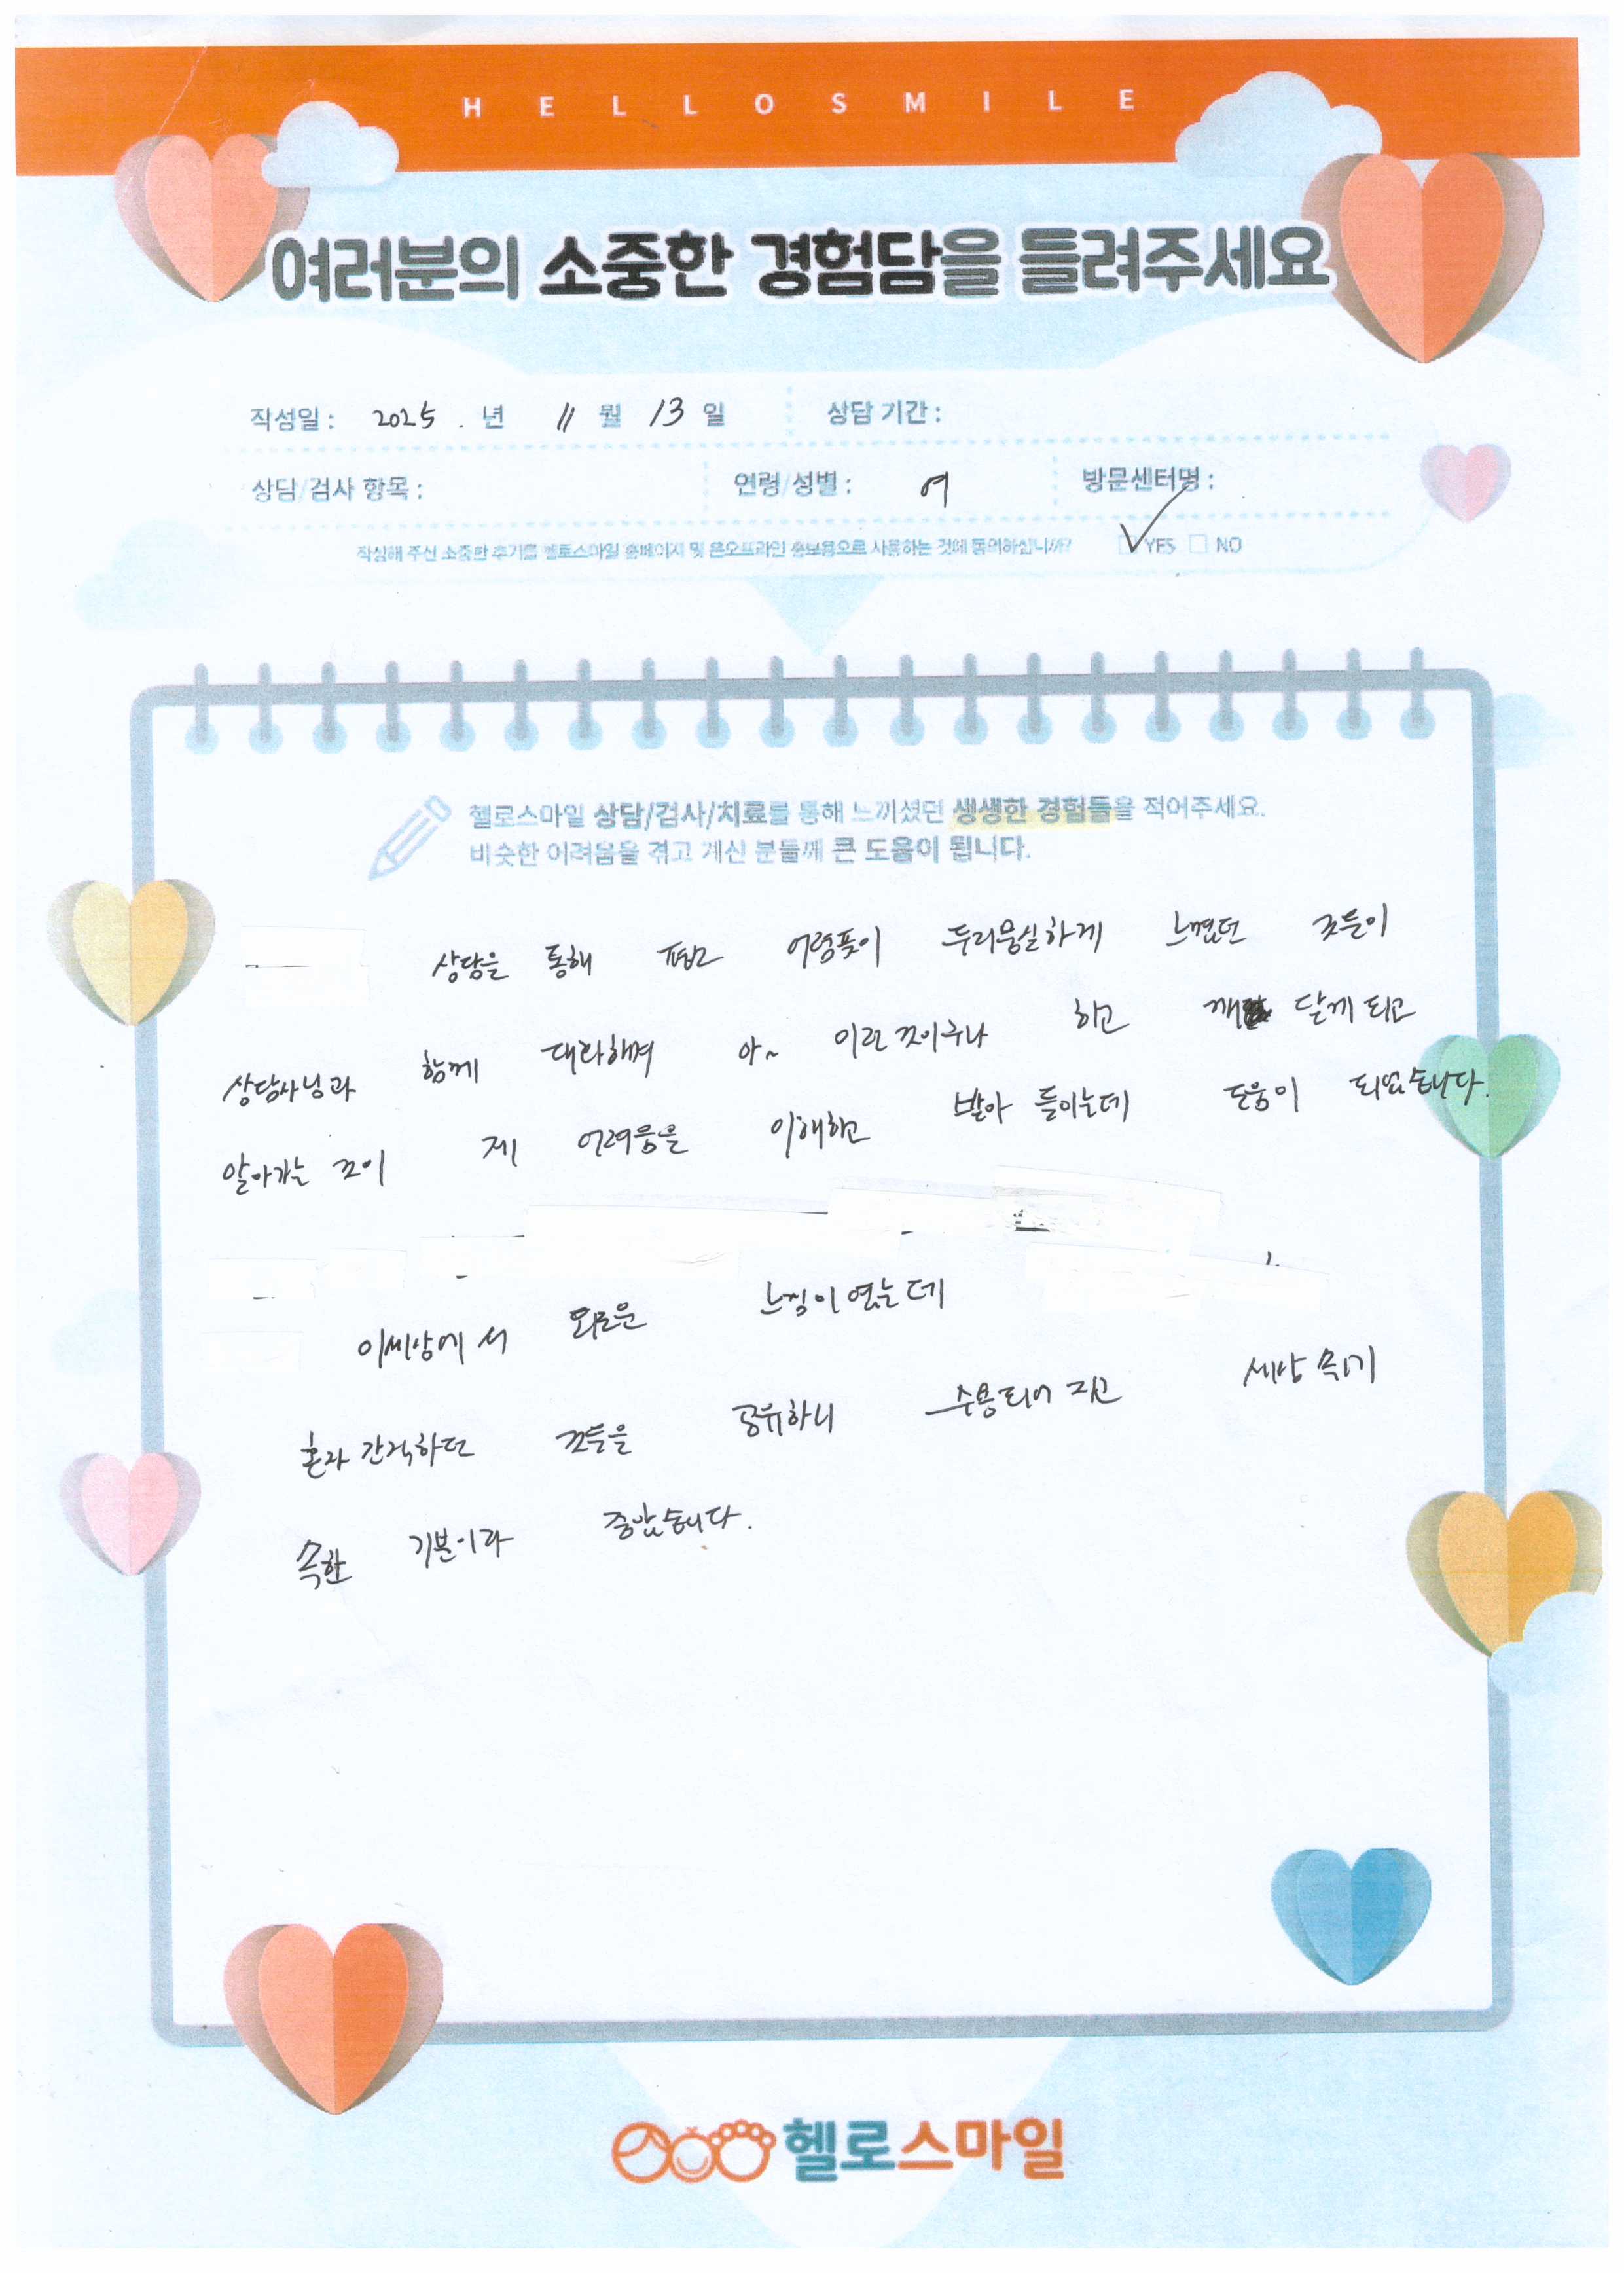 HELLOSMILE
여러분의 소중한 경험담을 들려주세요
작성일 : 2025 . 년 11 월 13 일 상담 기간 :
상담/검사 항목 : 연령/성별 : 여 방문센터명 :
작성해 주신 소중한 후기를 헬로스마일 홈페이지 및 온오프라인 홍보용으로 사용하는 것에 동의하십니까? YES NO
헬로스마일 상담/검사/치료를 통해 느끼셨던 생생한 경험들을 적어주세요.
비슷한 어려움을 겪고 계신 분들께 큰 도움이 됩니다.
상담을 통해 어렴풋이 두리뭉실하게 느꼈던 것들이
상담사님과 함께 대화하며 아~ 이런 것이구나 하고 깨 달게 되고
알아가는 것이 제 어려움을 이해하고 받아 들이는데 도움이 되었습니다.
이세상에서 외로운 느낌이 였는데
혼자 간직하던 것들을 공유하니 수용되어 지고 세상
속한 기분이라 좋았습니다.
헬로스마일